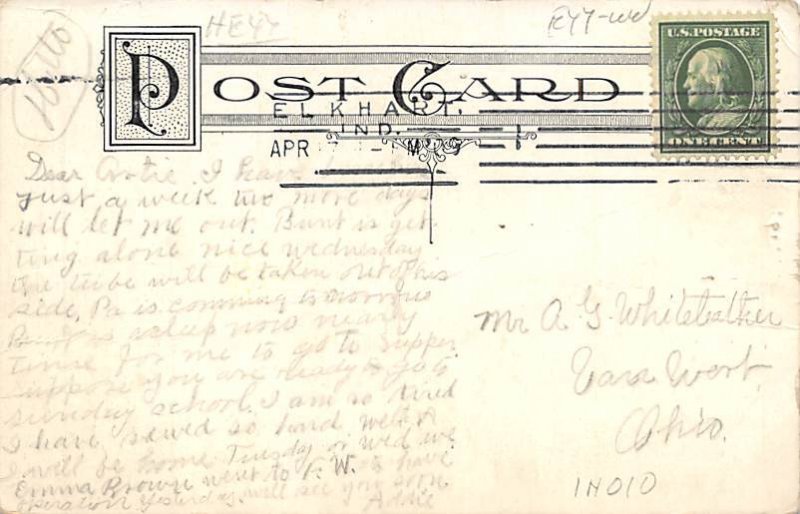 HEYY
EYY-wd
Hello
U.S. POSTAGE
ONE CENT
POST CARD
ELKHART,
IND.
APR
M
Dear Artie I have
just a week two more days
will let me out. Burt is get
ting along nice wednesday
the tube will be taken out of his
side, Pa is comming tomorrow
Burt is asleep now nearly
time for me to go to supper
suppose you are ready to go to
sunday school. I am so tired
I have sewed so hard. well A
I will be home Tuesday or wed we
Emma Brown went to F. W. to have
operation Yesterday. will see you soon.
Addie
Mr A. G. Whiteleather
Van Wert
Ohio.
IN010